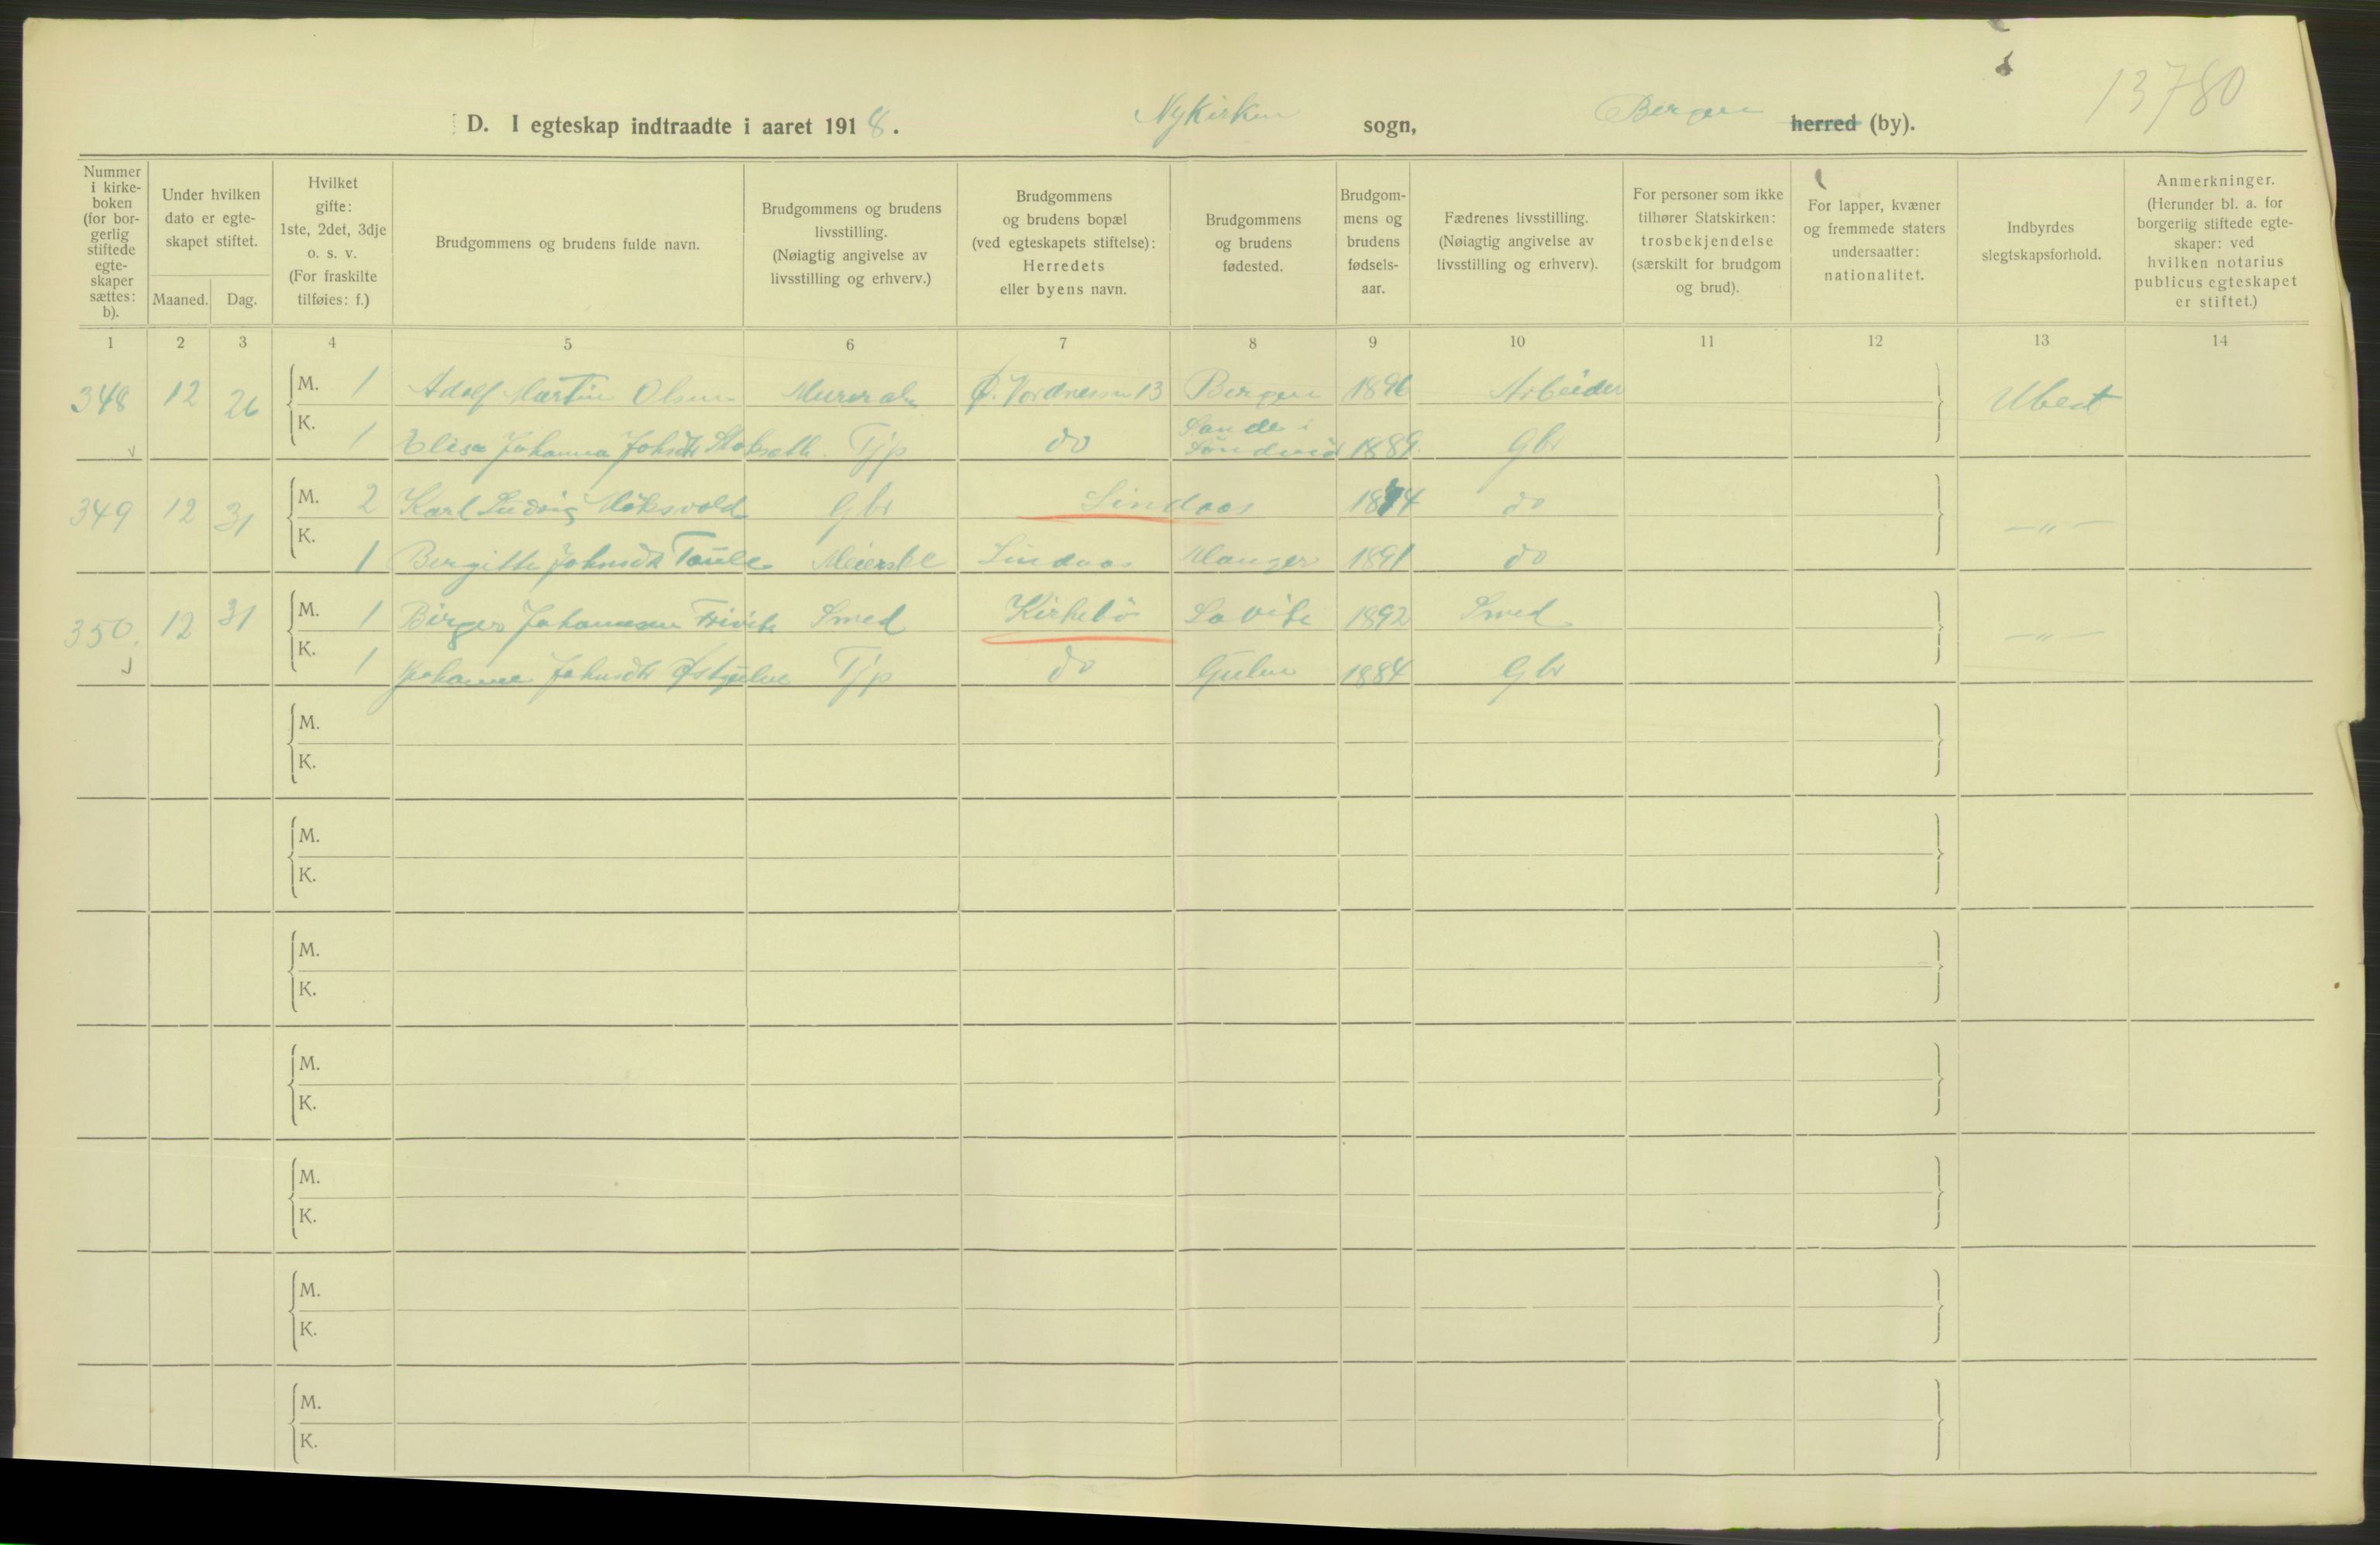 13780
D. I egteskap indtraadte i aaret 1918. Nykirken sogn, Bergen herred (by).
Nummer i kirke-boken (for bor-gerlig stiftede egte-skaper sættes: b).
Under hvilken dato er egte-skapet stiftet.
Maaned. Dag.
Hvilket gifte: 1ste, 2det, 3dje o. s. v. (For fraskilte tilføies: f.)
Brudgommens og brudens fulde navn.
Brudgommens og brudens livsstilling. (Nøiagtig angivelse av livsstilling og erhverv.)
Brudgommens og brudens bopæl (ved egteskapets stiftelse): Herredets eller byens navn.
Brudgommens og brudens fødested.
Brudgom-mens og brudens fødsels-aar.
Fædrenes livsstilling. (Nøiagtig angivelse av livsstilling og erhverv).
For personer som ikke tilhører Statskirken: trosbekjendelse (særskilt for brudgom og brud).
For lapper, kvæner og fremmede staters undersaatter: nationalitet.
Indbyrdes slegtskapsforhold.
Anmerkninger. (Herunder bl. a. for borgerlig stiftede egte-skaper: ved hvilken notarius publicus egteskapet er stiftet.)
1 2 3 4 5 6 7 8 9 10 11 12 13 14
348 12 26 M. 1 Adolf Martin Olsen Ø. 13 Bergen 1896 Arbeider Ubesl
K. 1 Elisa Johanna Johsdtr Tjp do Sande i 1889 Gbr
349 12 31 M. 2 Karl Ludvig Gbr Lindaas 1874 do —"—
K. 1 Bergitte Johnsdtr Lindaas Manger 1891 do
350. 12 31 M. 1 Birger Johannesen Smed Kirkebö Lavik 1892 Smed —"—
K. 1 Johanne Johnsdtr Tjp do Gulen 1884 Gbr
M.
K.
M.
K.
M.
K.
M.
K.
M.
K.
M.
K.
M.
K.